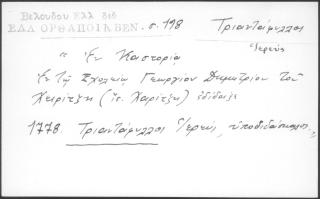 Βελουδου Ελλ δεδ
ΕΛΛ ΟΡΘ ΑΠΟΙΚ ΒΕΝ. σ. 198 Τριαντάφυλλος
ἱερεύς
" Ἐν Καστορίᾳ
Ἐν τῇ Σχολείῳ Γεωργίου Δημητρίου τοῦ
(ἴσ. Χαρίτζη) ἐδίδαξε
1778. Τριαντάφυλλος ἱερεύς, ὑποδιδάσκαλος.